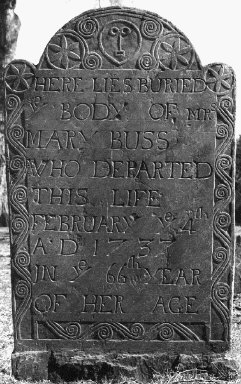 HERE LIES BURIED
yᵉ BODY OF MRS
MARY BUSS
WHO DEPARTED
THIS LIFE
FEBRUARY yᵉ 4th
A:D: 1737
IN yᵉ 66th YEAR
OF HER AGE